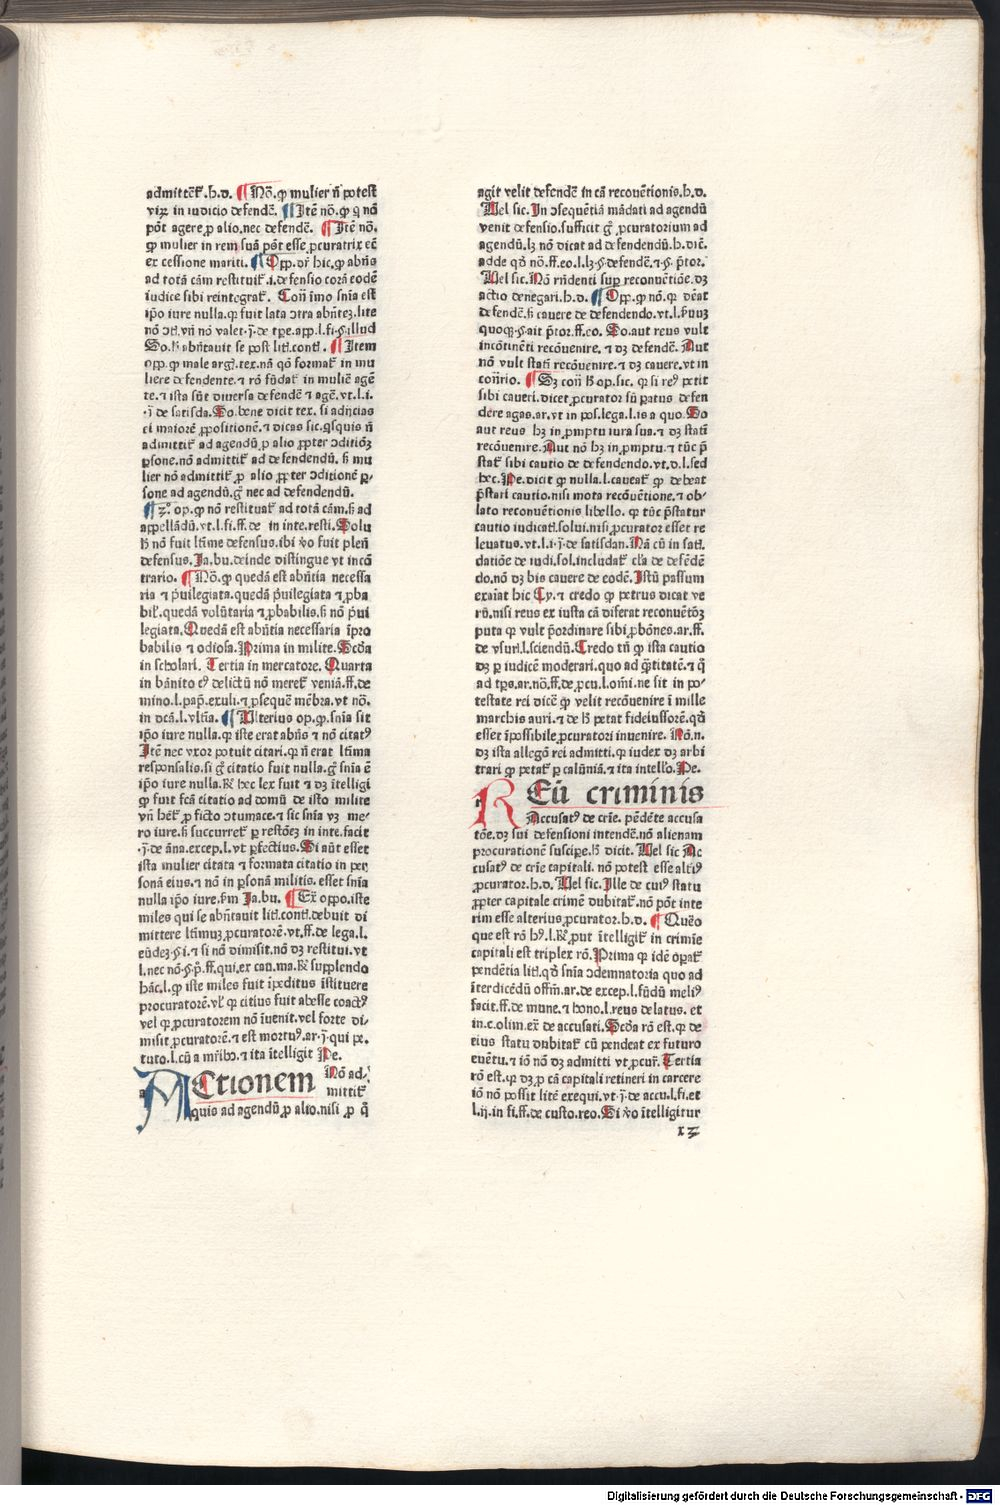 admittēt̄.h.d. ¶ Nō.ꝙ mulier n̄ potest
viꝝ in iudicio defendē. ¶ Itē nō.ꝙ q nō
pōt agere ꝑ alio.nec defendē. ¶ Itē nō.
ꝙ mulier in rem suā pōt esse ꝓcuratrix eē
ex cessione mariti. ¶ Opp.dr̄ hic.ꝙ abn̄s
ad totā cām restituit̄.i.defensio corā eodē
iudice sibi reintegrat̄. Con̄ imo sn̄ia est
ip̄o iure nulla.ꝙ fuit lata ɔtra abn̄tez.lite
nō ɔtl̄.vn̄ nō valet.j̄.de tꝑe.app.l.fi.§.illud
So.h̄ abn̄tauit se post lit̄l.contl̄. ¶ Item
opp.ꝙ male argt̄.tex.nā qō format̄ in mu
liere defendente.⁊ rō fūdat̄ in muliē agē
te.⁊ ista sūt diuersa defendē ⁊ agē.vt.l.i.
.j̄.de satisda. So.bene dicit tex. si adijcias
ei maiorē ꝓpositionē.⁊ dicas sic.qsquis n̄
admittit̄ ad agendū ꝑ alio ꝓpter ɔditiōꝫ
ꝑsone.nō admittit̄ ad defendendū. h̄ mu
lier nō admittit̄ ꝑ alio ꝓpter ɔditionē ꝑ-
sone ad agendū.g̊ nec ad defendendū.
¶ 2º op.ꝙ nō restituat̄ ad totā cām.h̄ ad
appellādū.vt.l.fi.ff.de in inte.resti. Solu
h̄ nō fuit ltīme defensus.ibi v̊o fuit plen̄
defensus. Ja.bu.deinde distingue vt in cō
trario. ¶ Nō.ꝙ quedā est abn̄tia necessa
ria ⁊ p̄uilegiata.quedā p̄uilegiata ⁊ ꝓba
bil̄.quedā volūtaria ⁊ ꝓbabilis.h̄ nō p̄ui
legiata. Quedā est abn̄tia necessaria īpro
babilis ⁊ odiosa. Prima in milite. Scd̄a
in scholari. Tertia in mercatore. Quarta
in bānito cꝰ delictū nō meret̄ veniā.ff.de
mino.l.pap̄.exuli.⁊ ꝑsequē mēbra.vt nō.
in dcā.l.vltīa. ¶ Ulterius op.ꝙ.sn̄ia sit
ip̄o iure nulla.ꝙ iste erat abn̄s ⁊ nō citatꝰ
Itē nec vxor potuit citari.ꝙ n̄ erat ltīma
responsalis.si g̊ citatio fuit nulla.g̊ sn̄ia ē
ip̄o iure nulla. Rn̄ hec lex fuit ⁊ dꝫ ītelligi
ꝙ fuit fcā citatio ad domū de isto milite
vn̄ hēt̄ ꝑ ficto ɔtumace.⁊ sic sn̄ia vꝫ me-
ro iure.h̄ succurret̄ ꝑ restōeꝫ in inte.facit
.j̄.de āna.excep.l.vt ꝑfectius. Si aūt esset
ista mulier citata ⁊ formata citatio in per
sonā eius.⁊ nō in ꝑsonā militis.esset sn̄ia
nulla ip̄o iure.fm̄ Ja.bu. ¶ Ex oppo.iste
miles qui se abn̄tauit lit̄l.contl̄.debuit di
mittere ltīmuꝫ ꝓcuratorē.vt.ff.de lega.l.
eūdeꝫ.§.i.⁊ si nō dimisit.nō dꝫ restitui.vt
l.nec nō.§.p̄.ff.qui.ex cau.ma. Rn̄ supplendo
hāc.l.ꝙ iste miles fuit īpeditus īstituere
procuratorē.vl̄ ꝙ citius fuit abesse coactꝰ
vel ꝙ ꝓcuratorem nō īuenit.vel forte di-
misit ꝓcuratorē.⁊ est mortuꝰ.ar.j̄.qui pe.
tuto.l.cū a mr̄ibꝰ.⁊ ita ītelligit Pe.
ACtionem Nō ad-
mittit̄
quis ad agendū ꝑ alio.nisi ꝑ q̄
agit velit defendē in cā recouētionis.h.d.
Uel sic. In ɔsequētiā mādati ad agendū
venit defensio.sufficit g̊ ꝓcuratorium ad
agendū.lꝫ nō dicat ad defendendū.h.diē.
adde qd̄ nō.ff.eo.l.lꝫ.§.defendē.⁊.§.p̄tor.
Uel sic. Nō rn̄denti sup recouētiōe.dꝫ
actio denegari.h.d. ¶ Opp.ꝙ nō.ꝙ deāt
defendē.h̄ cauere de defendendo.vt.l.p̄uuꝫ
quoqꝫ.§.ait p̄tor.ff.eo. So.aut reus vult
incōtinēti recōuenire.⁊ dꝫ defendē. Aut
nō vult statī recōuenire.⁊ dꝫ cauere.vt in
con̄rio. ¶ Sꝫ con̄ h̄ op.sic.ꝙ si reꝰ petit
sibi caueri.dicet ꝓcurator sū ꝑatus defen
dere agas.ar.vt in pos.lega.l.is a quo. So
aut reus hꝫ in ꝓmptu iura sua.⁊ dꝫ statī
recōuenire. Aut nō hꝫ in ꝓmptu.⁊ tūc p̄
stat̄ sibi cautio de defendendo.vt.d.l.sed
hec. Pe.dicit ꝙ nulla.l.caueat̄ ꝙ debeat
p̄stari cautio.nisi mota recōuētione.⁊ ob-
lato reconuētionis libello. ꝙ tūc p̄statur
cautio iudicatl̄.solui.nisi ꝓcurator esset re
leuatus.vt.l.i.j̄.de satisdan. Nā cū in satl̄.
datiōe de iudi.sol.includat̄ cl̄a de defēdē
do.nō dꝫ bis cauere de eodē. Istū passum
exaīat hic Cy.⁊ credo ꝙ petrus dicat ve
rū.nisi reus ex iusta cā diferat reconuētōꝫ
puta ꝙ vult p̄ordinare sibi ꝓbōnes.ar.ff.
de vsurl̄.l.sciendū. Credo tn̄ ꝙ ista cautio
dꝫ ꝑ iudicē moderari.quo ad q̄titatē.⁊ q̄
ad tꝑs.ar.nō.ff.de ꝓcu.l.om̄i.ne sit in po-
testate rei dicē ꝙ velit recōuenire ī mille
marchis auri.⁊ de h̄ petat fideiussorē.qd̄
esset īpossibile ꝓcuratori inuenire. Nō.n.
dꝫ ista allegō rei admitti.ꝙ iudex dꝫ arbi
trari ꝙ petat̄ ꝑ calūniā.⁊ ita intellr̄o. Pe.
REū criminis
Accusatꝰ de crīe. pēdēte accusa
tōe.dꝫ sui defensioni intendē.nō alienam
procurationē suscipe.h̄ dicit. Uel sic Ac
cusatꝰ de crīe capitali. nō potest esse altiꝰ
ꝓcurator.h.d. Uel sic. Ille de cuiꝰ statu
ꝓpter capitale crimē dubitat̄.nō pōt inte
rim esse alterius ꝓcurator.h.d. ¶ Quēo
que est rō hꝰ.l. Rn̄ ꝓut ītelligit̄ in crimīe
capitali est triplex rō. Prima ꝙ idē opat̄
pendētia litl̄.qd̄ sn̄ia ɔdemnatoria quo ad
īterdicēdū offm̄.ar.de excep.l.fūdū meliꝰ
facit.ff.de mune.⁊ hono.l.reus delatus. et
in.c.olim.ex̄ de accusati. Scd̄a rō est.ꝙ de
eius statu dubitat̄ cū pendeat ex futuro
euētu.⁊ iō nō dꝫ admitti vt ꝓcur̄. Tertia
rō est.ꝙ dꝫ ꝑ cā capitali retineri in carcere
iō nō possit litē exequi.vt.j̄.de accu.l.fi.et
l.ij.in fi.ff.de custo.reo. Si v̊o ītelligitur
x 2
Digitalisierung gefördert durch die Deutsche Forschungsgemeinschaft - DFG